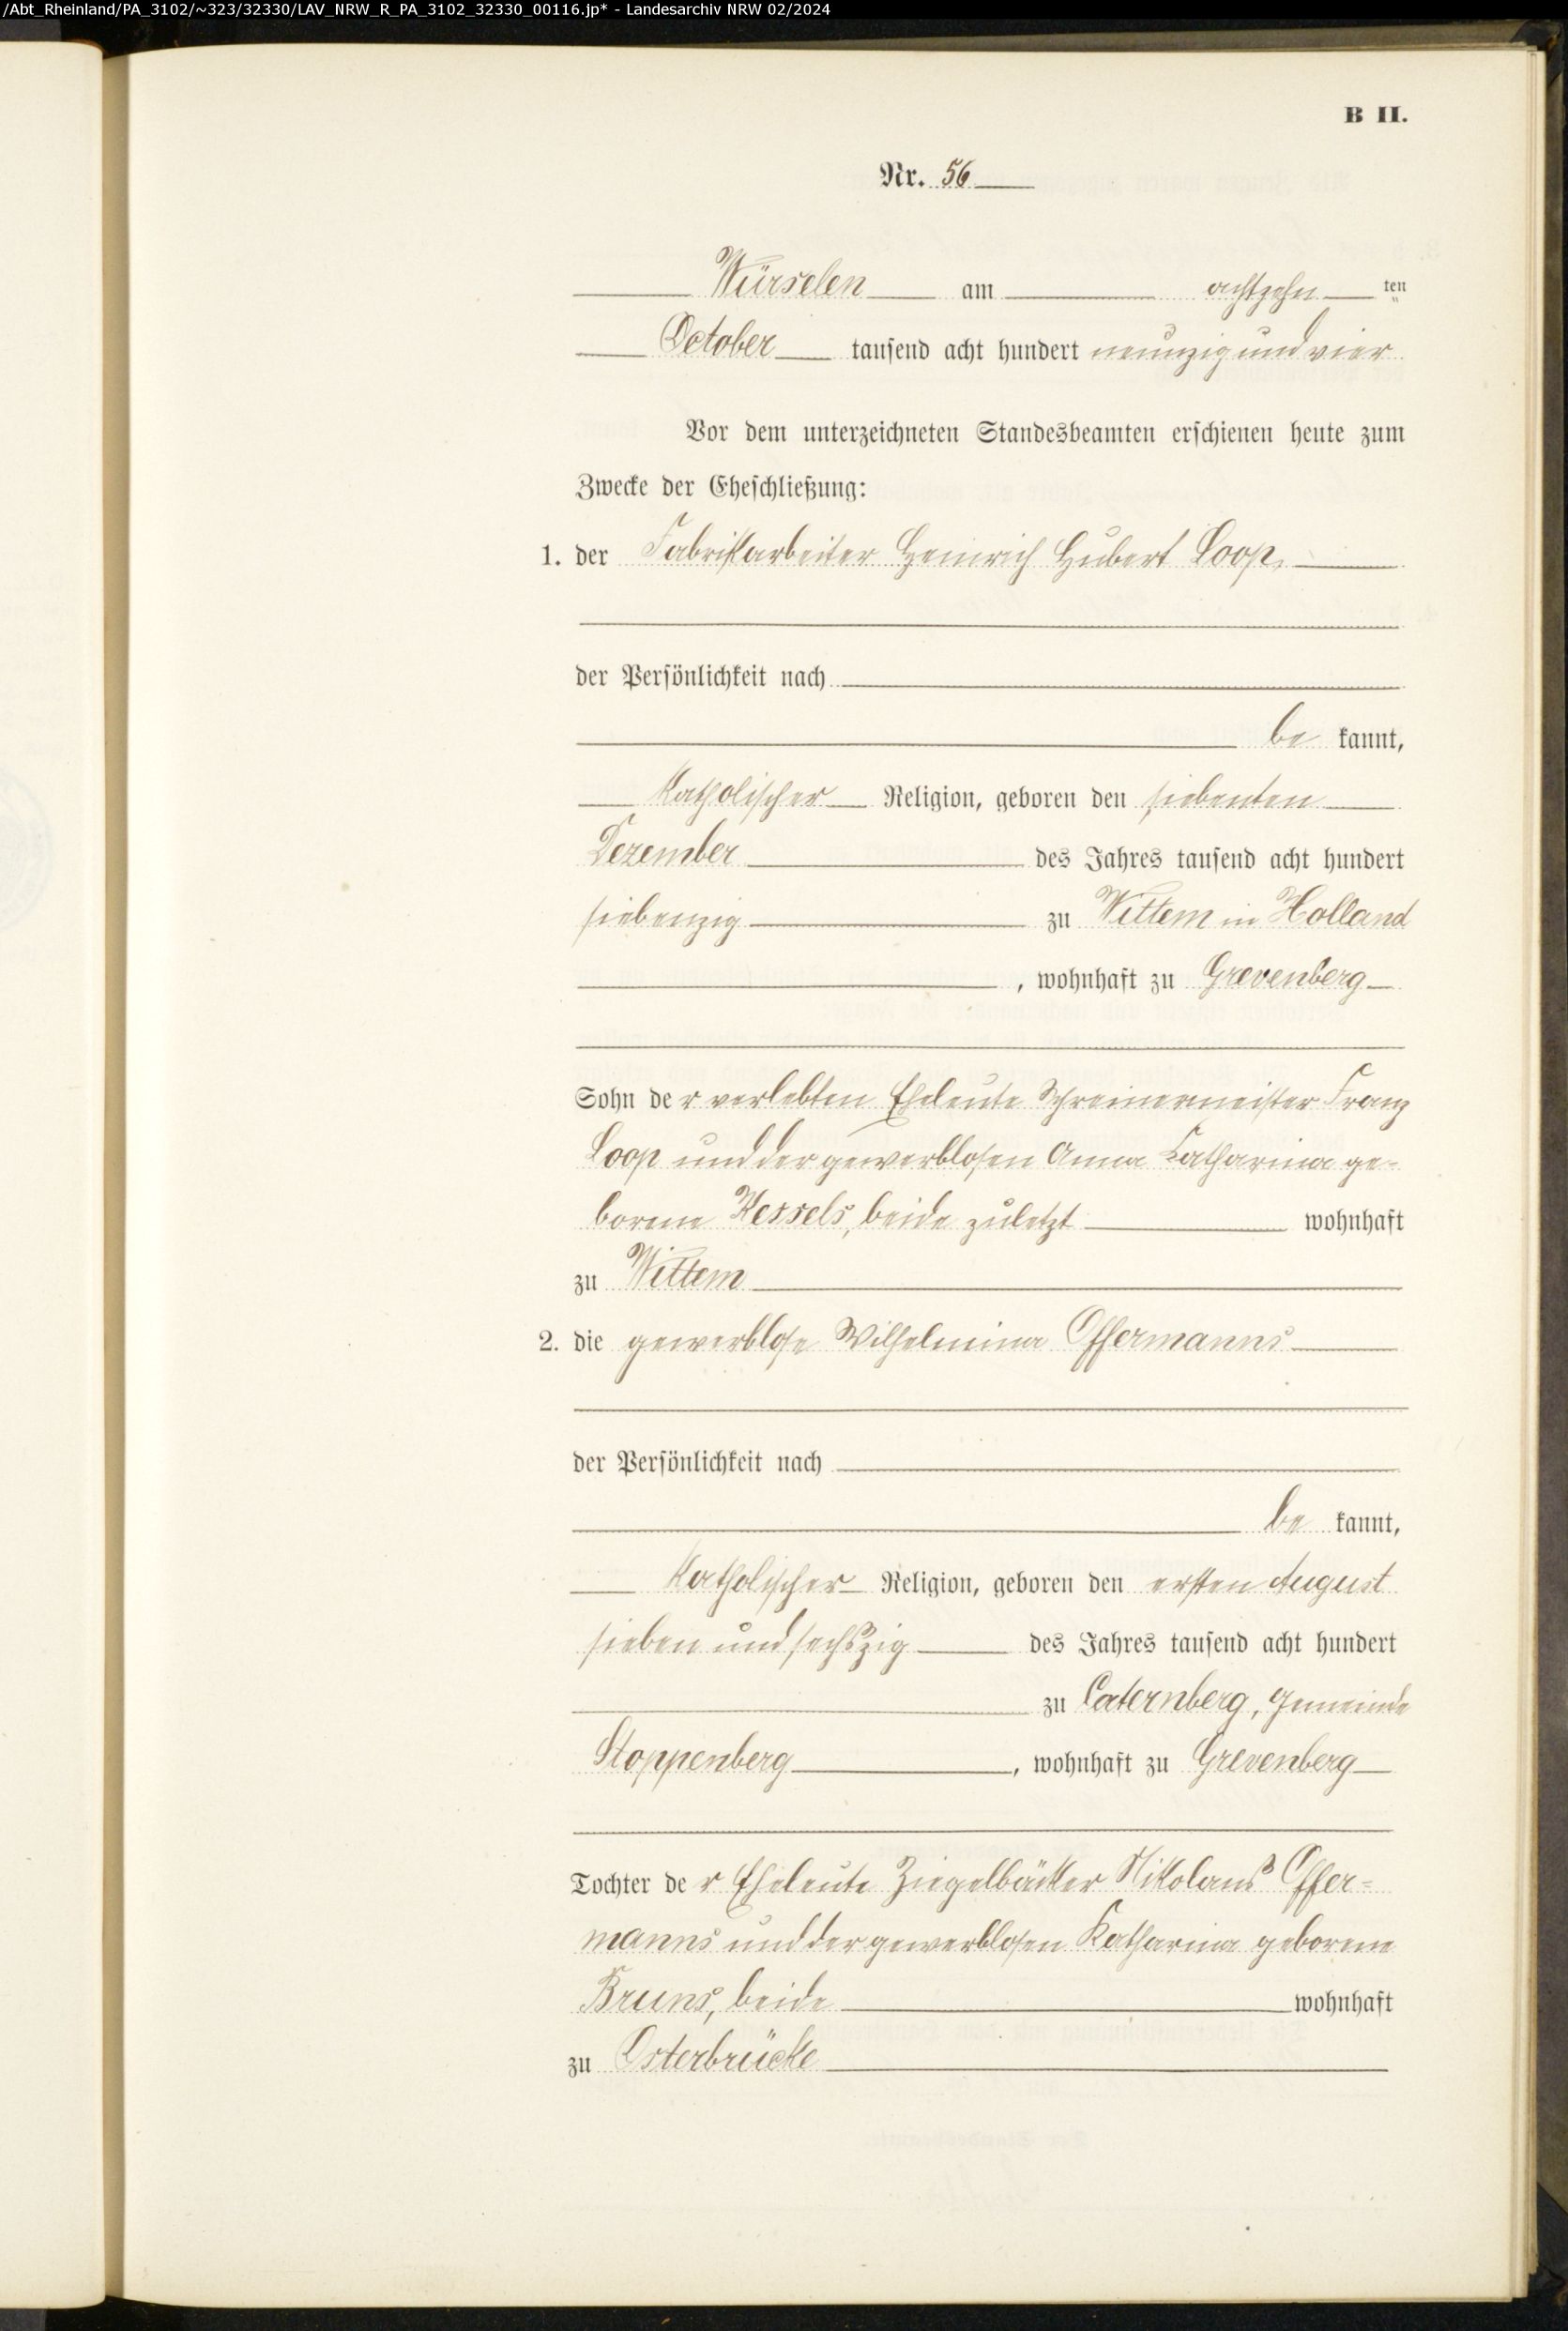 /Abt_Rheinland/PA_3102/~323/32330/LAV_NRW_R_PA_3102_32330_00116.jp* - Landesarchiv NRW 02/2024
B II.
Nr. 56
Würselen am achtzehn ten
October tausend acht hundert neunzig und vier
Vor dem unterzeichneten Standesbeamten erschienen heute zum
Zwecke der Eheschließung:
1. der Fabrikarbeiter Heinrich Hubert Loop,
der Persönlichkeit nach
be kannt,
katholischer Religion, geboren den siebenten
Dezember des Jahres tausend acht hundert
siebenzig zu Wittem in Holland
, wohnhaft zu Grevenberg
Sohn der verlebten Eheleute Schreinermeister Franz
Loop und der gewerblosen Anna Catharina ge-
borene Kessels, beide zuletzt wohnhaft
zu Wittem
2. die gewerblose Wilhelmina Offermanns
der Persönlichkeit nach
be kannt,
katholischer Religion, geboren den ersten August
sieben und sechszig des Jahres tausend acht hundert
zu Caternberg, Gemeinde
Stoppenberg, wohnhaft zu Grevenberg
Tochter der Eheleute Ziegelbäcker Nikolaus Offer=
manns und der gewerblosen Katharina geborene
Bruns, beide wohnhaft
zu Osterbrücke